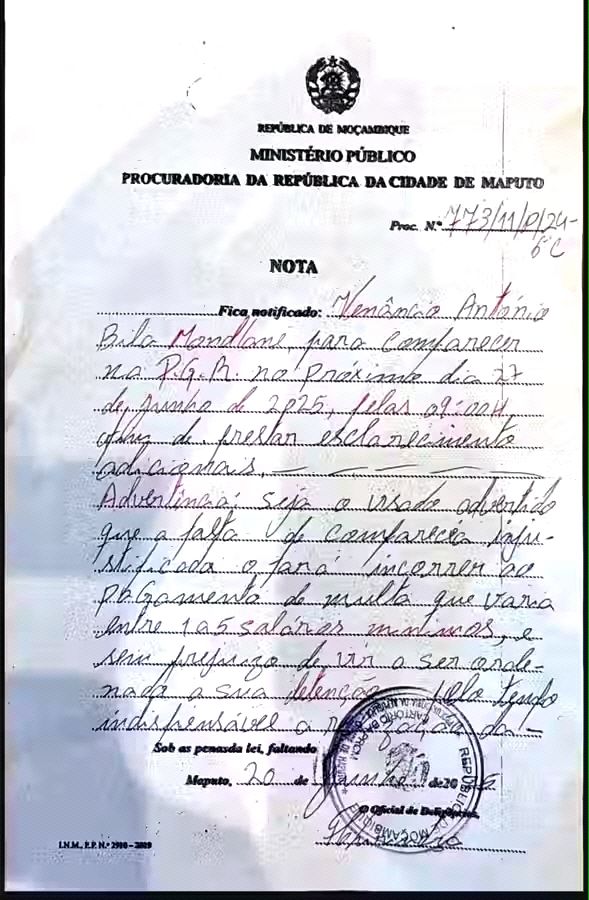 REPÚBLICA DE MOÇAMBIQUE
MINISTÉRIO PÚBLICO
PROCURADORIA DA REPÚBLICA DA CIDADE DE MAPUTO
Proc. N.º 773/11/P/24-
6ª C
NOTA
Fica notificado: Venâncio António
Bila Mondlane, para comparecer
na P.G.R. no próximo dia 27
de junho de 2025, pelas 09:00H,
afim de prestar esclarecimento
adicionais.
Advertência: seja o visado advertido
que a falta de comparecia inju-
stificada o fará incorrer ao
pagamento de multa que varia
entre 1 a 5 salários minimos, e
sem prejuizo de vir a ser orde-
nada a sua detenção pelo tempo
indispensáveis a realização da -
Sob as penas da lei, faltando
Maputo, 20 de Junho de 2025
O Oficial de Deligências,
REPÚBLICA DE MOÇAMBIQUE
I.N.M., E.P. N.º 2900 - 2009